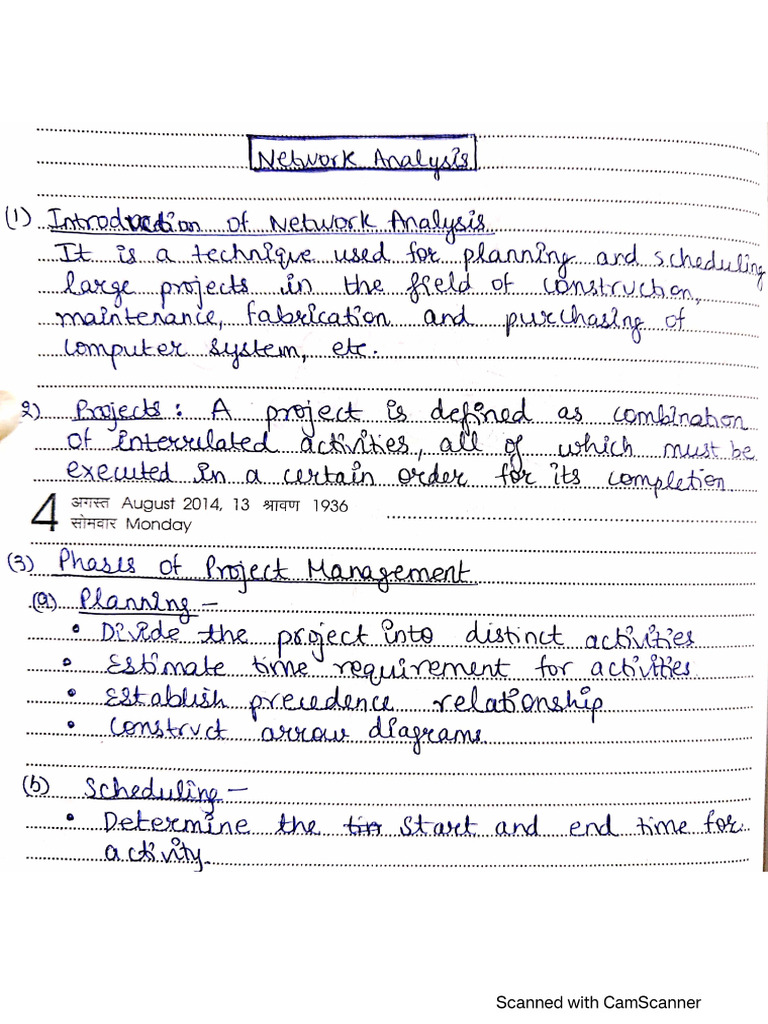 Network Analysis
(1) Introduction of Network Analysis
It is a technique used for planning and scheduling
large projects in the field of construction,
maintenance, fabrication and purchasing of
computer system, etc.
2) Projects : A project is defined as combination
of interrulated activities, all of which must be
executed in a certain order for its completion
4 अगस्त August 2014, 13 श्रावण 1936
सोमवार Monday
(3) Phases of Project Management
(a) Planning -
• Divide the project into distinct activities
• Estimate time requirement for activities
• Establish precedence relationship
• Construct arrow diagrams
(b) Scheduling -
• Determine the tim start and end time for
activity
Scanned with CamScanner